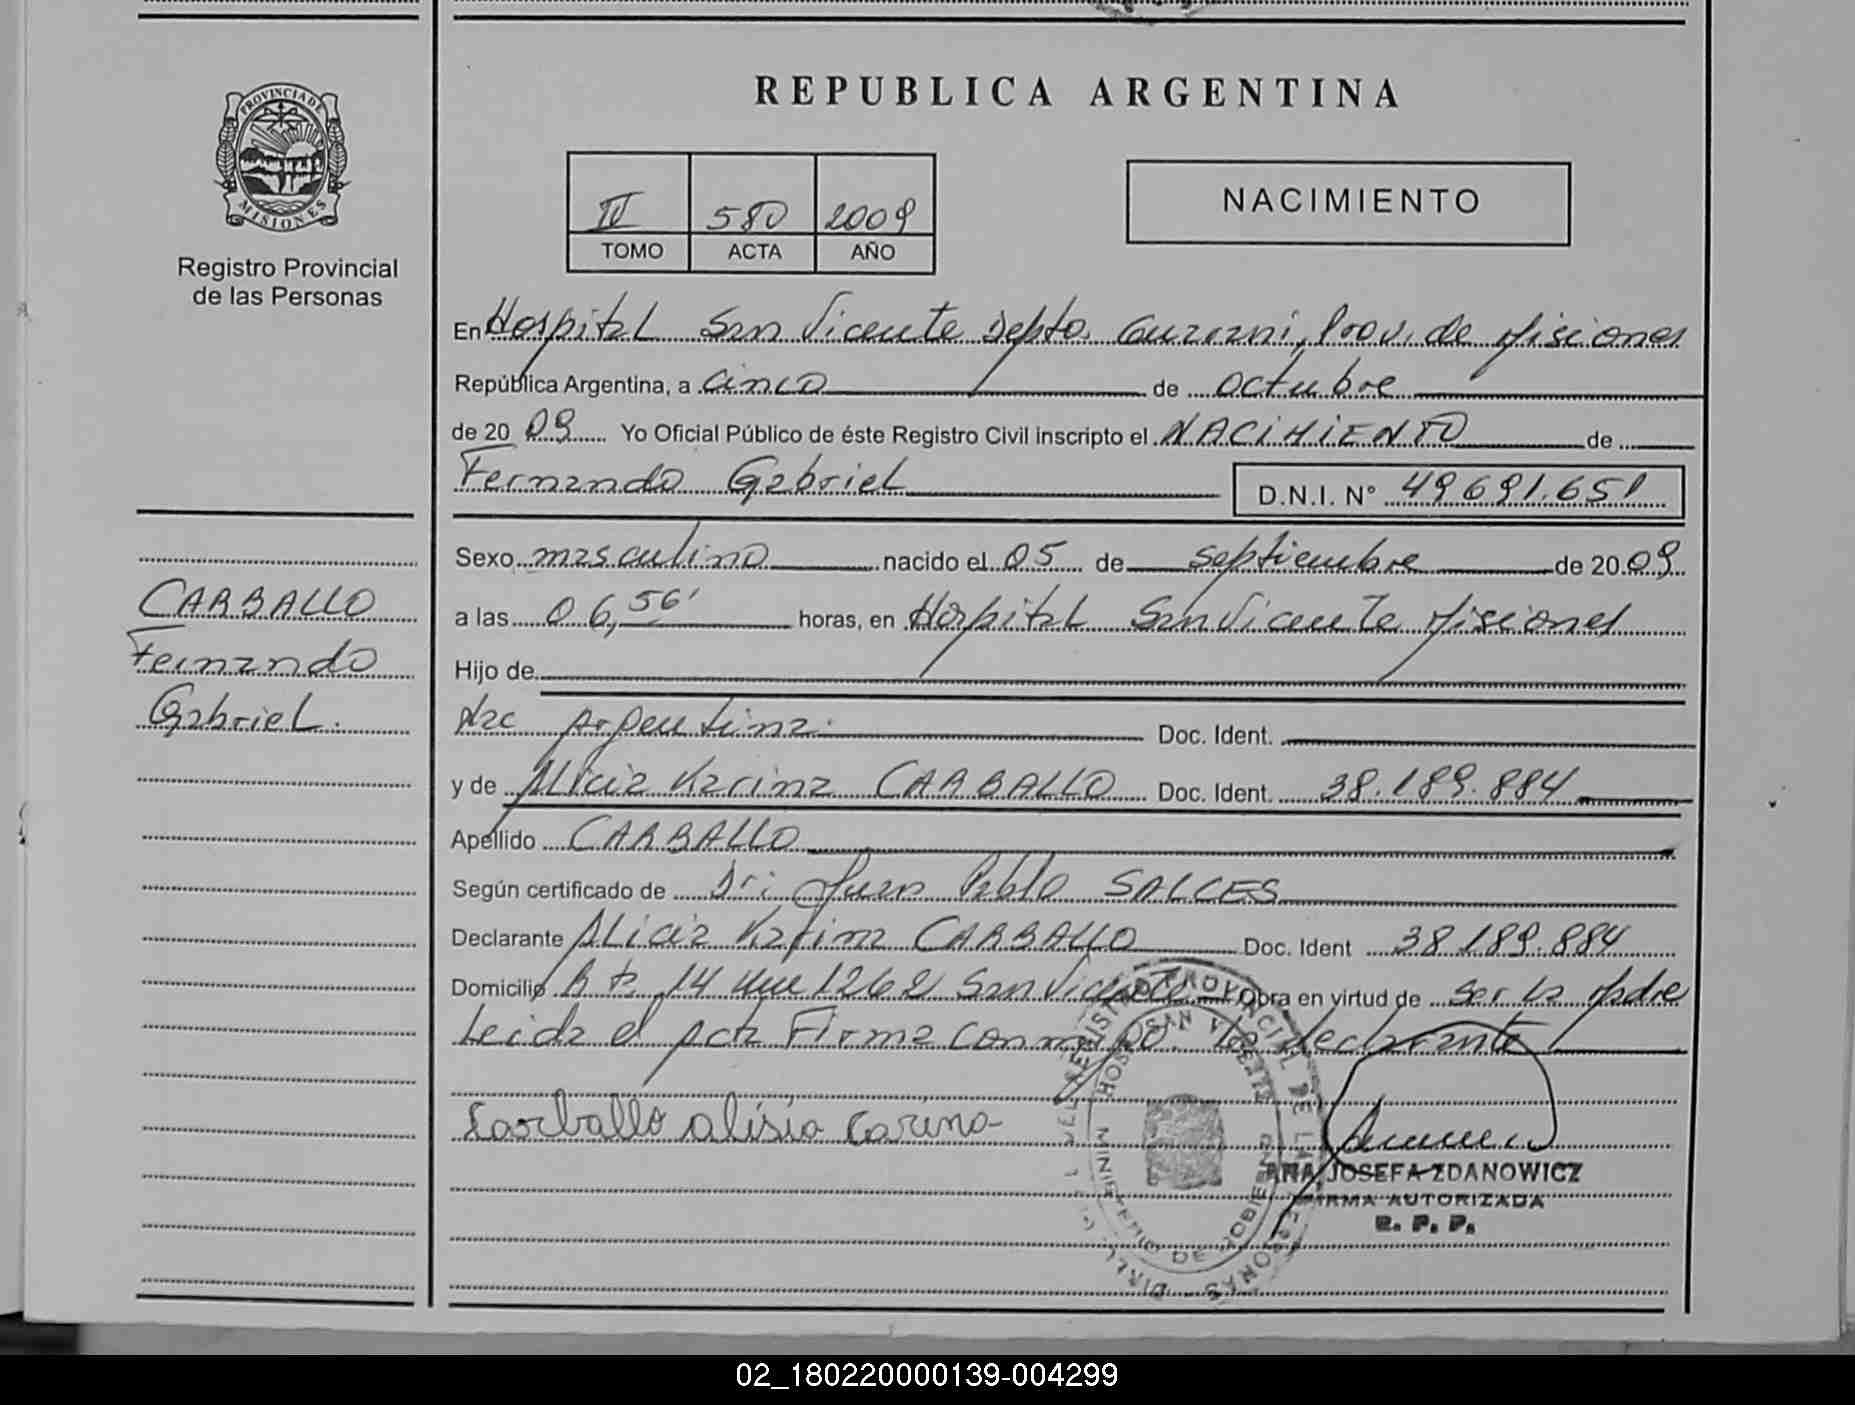 PROVINCIA DE
MISIONES
Registro Provincial
de las Personas
CARBALLO
Fernando
Gabriel.
REPUBLICA ARGENTINA
IV 580 2009
TOMO ACTA AÑO
NACIMIENTO
En Hospital San Vicente Depto. Guarani, Prov. de Misiones
República Argentina, a cinco de octubre
de 20 09 Yo Oficial Público de éste Registro Civil inscripto el NACIMIENTO de
Fernando Gabriel D.N.I. Nº 49691.651
Sexo masculino nacido el 05 de septiembre de 20 09
a las 06,56' horas, en Hospital San Vicente Misiones
Hijo de
Nac Argentina. Doc. Ident.
y de Alicia Karina CARBALLO Doc. Ident. 38.189.884
Apellido CARBALLO
Según certificado de Dr: Juan Pablo SALCES
Declarante Alicia Karina CARBALLO Doc. Ident 38.189.884
Domicilio 14 km 1262 San Vicente Obra en virtud de ser la Madre
Leida el acta Firma conmigo. La declarante
Carballo alisia Carina
ANA JOSEFA ZDANOWICZ
FIRMA AUTORIZADA
R. P. P.
02_180220000139-004299